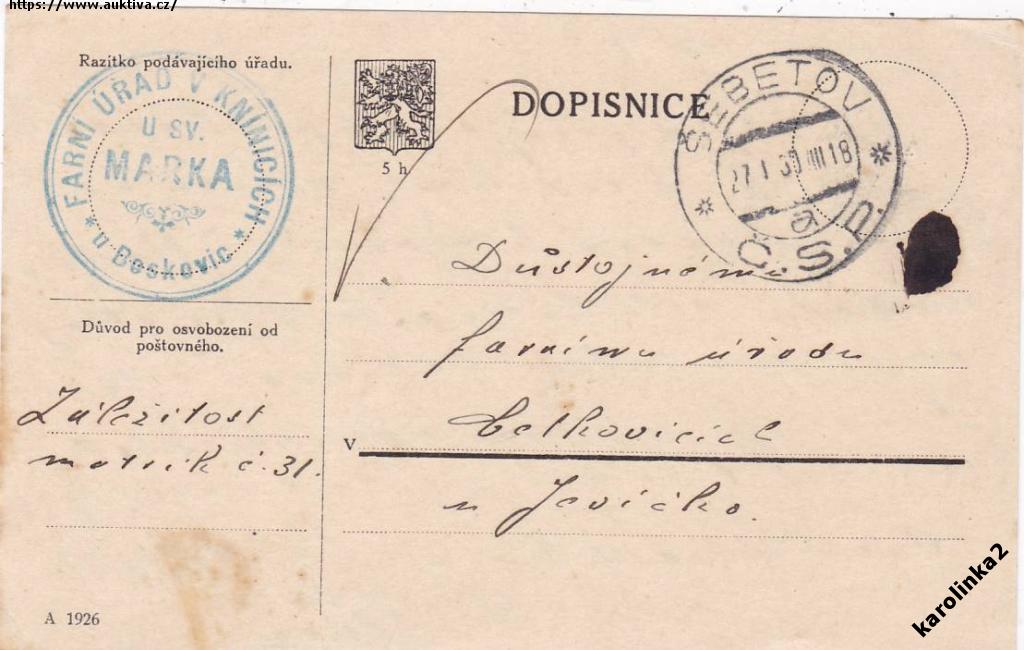 https://www.auktiva.cz/
Razítko podávajícího úřadu.
FARNÍ ÚŘAD V KNÍNICÍCH
U SV.
MARKA
* u Boskovic *
5 h
DOPISNICE
ŠEBETOV
27 I 30 18
a
* Č.S.P. *
Důstojnému
farnímu úřadu
Důvod pro osvobození od
poštovného.
Záležitost
matrik č. 31.
v Cetkovicích
u Jevíčka.
A 1926
karolinka2